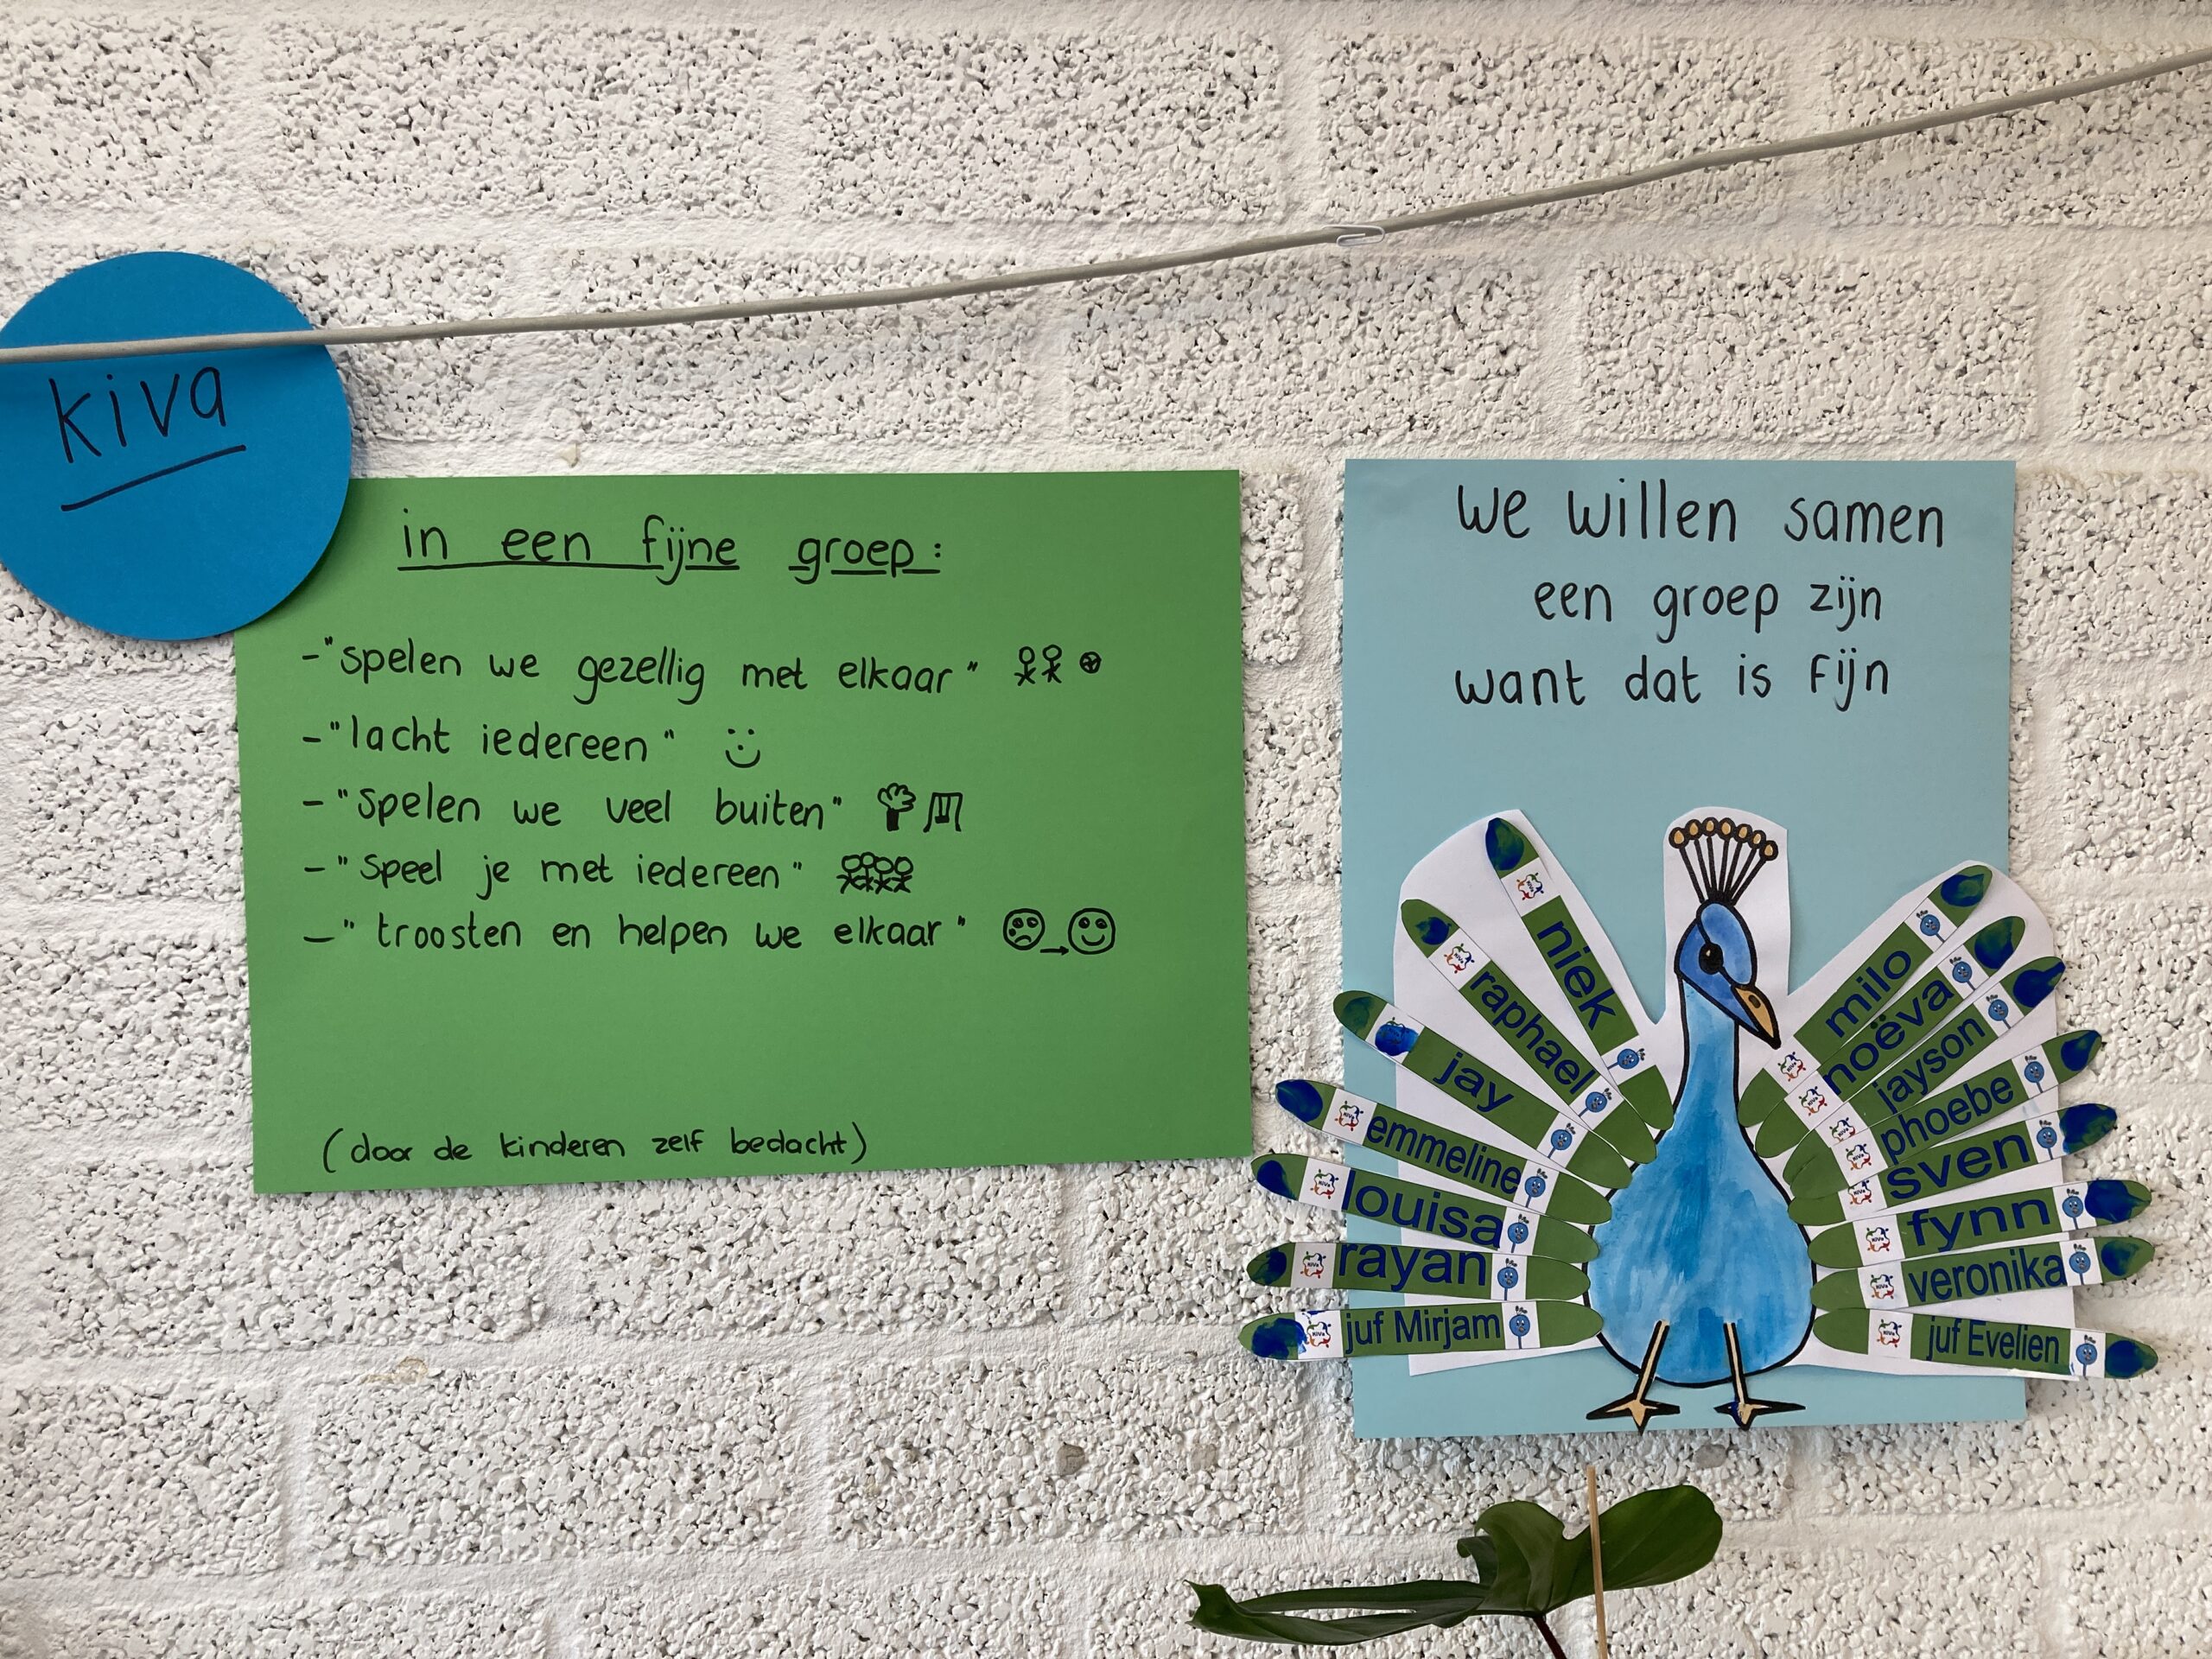 kiva
in een fijne groep:
-"spelen we gezellig met elkaar"
-"lacht iedereen"
-"spelen we veel buiten"
-"speel je met iedereen"
-"troosten en helpen we elkaar"
(door de kinderen zelf bedacht)
we willen samen
een groep zijn
want dat is fijn
niek
raphael
jay
emmeline
louisa
rayan
juf Mirjam
milo
noëva
jayson
phoebe
sven
fynn
veronika
juf Evelien